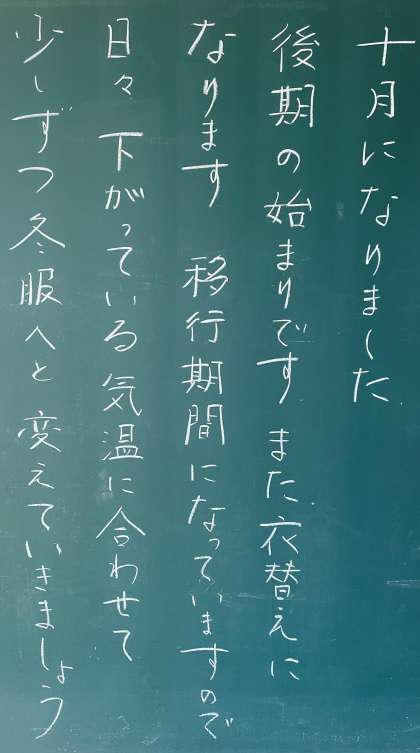 十月になりました
後期の始まりです また 衣替えに
なります 移行期間になっていますので
日々 下がっている 気温に 合わせて
少しずつ冬服へと 変えていきましょう